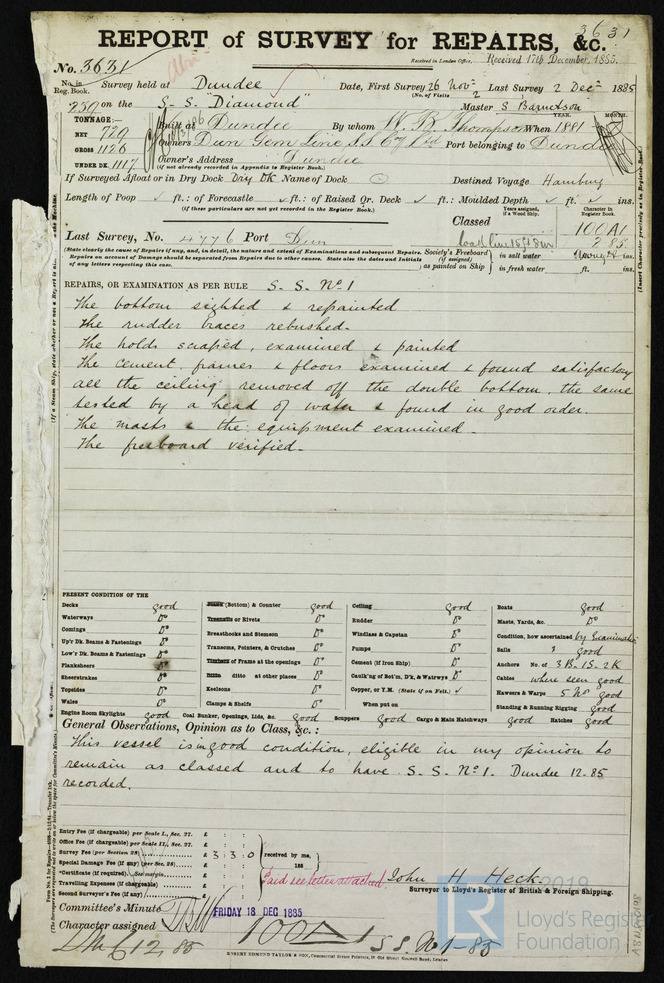 3631
REPORT of SURVEY for REPAIRS, &c.
Received in London Office, Received 17th December, 1885.
No. 3631
No. in Reg. Book. Survey held at Dundee Date, First Survey 26 Novr Last Survey 2 Decr 1885
(No. of Visits 2
239 on the S. S. "Diamond" Master S Barnetson
TONNAGE:—
NET 729
GROSS 1126
UNDER DK. 1117
YEAR. MONTH.
Built at Dundee By whom W. B. Thompson When 1881
Owners Dun Gem Line SS Coy Ltd Port belonging to Dundee
Owner's Address Dundee
(if not already recorded in Appendix to Register Book.)
If Surveyed Afloat or in Dry Dock Dry Dk Name of Dock Destined Voyage Hamburg
Length of Poop ft.: of Forecastle ft.: of Raised Qr. Deck ft.: Moulded Depth ft. ins.
(if these particulars are not yet recorded in the Register Book.)
Years assigned, if a Wood Ship. Character in Register Book.
Classed 100A1
2 85
Last Survey, No. 4776 Port Dun
(State clearly the cause of Repairs if any, and, in detail, the nature and extent of Examinations and subsequent Repairs.
Repairs on account of Damage should be separated from Repairs due to other causes. State also the dates and Initials
of any letters respecting this case.
Society's Freeboard (if assigned) as painted on Ship
in salt water ins.
in fresh water ft. ins.
REPAIRS, OR EXAMINATION AS PER RULE S. S. No. 1
The bottom sighted & repainted
The rudder braces rebushed.
The holds scraped, examined & painted
The cement, frames & floors examined & found satisfactory
all the ceiling removed off the double bottom, the same
tested by a head of water & found in good order.
The masts & the equipment examined.
The freeboard verified.
PRESENT CONDITION OF THE
Decks good
Waterways Do
Comings Do
Up'r Dk. Beams & Fastenings Do
Low'r Dk. Beams & Fastenings Do
Planksheers Do
Sheerstrakes Do
Topsides Do
Wales Do
Engine Room Skylights good
Plank (Bottom) & Counter good
Treenails or Rivets Do
Breasthooks and Stemson Do
Transoms, Pointers, & Crutches Do
Timbers of Frame at the openings Do
Ditto ditto at other places Do
Keelsons Do
Clamps & Shelfs Do
Coal Bunker, Openings, Lids, &c. good
Ceiling good
Rudder Do
Windlass & Capstan Do
Pumps Do
Cement (if Iron Ship) Do
Caulk'ng of Bot'm, D'k, & Watrwys Do
Copper, or Y.M. (State if on Felt.)
When put on
Scuppers good Cargo & Main Hatchways good
Boats good
Masts, Yards, &c. Do
Condition, how ascertained by Examination
Sails " good
Anchors No. of 3 B. 1 S. 2 K
Cables where seen good
Hawsers & Warps 5 No good
Standing & Running Rigging good
Hatches good
General Observations, Opinion as to Class, &c.:
This vessel is in good condition, eligible in my opinion to
remain as classed and to have S. S. No. 1. Dundee 12-85
recorded.
Entry Fee (if chargeable) per Scale I., Sec. 27. £ : :
Office Fee (if chargeable) per Scale II., Sec. 27. £ : :
Survey Fee (per Section 28) £ 3 : 3 : 0
Special Damage Fee (if any) (per Sec. 28) £ : :
*Certificate (if required) See margin £ : :
Travelling Expenses (if chargeable) £
Second Surveyor's Fee (if any) £
received by me,
188
Paid see letter attached
John H Heck.
Surveyor to Lloyd's Register of British & Foreign Shipping.
Committee's Minute FRIDAY 18 DEC 1885
Character assigned 100A1 S S No 1-85
LMC 12,85
ROBERT EDMUND TAYLOR & SON, Commercial Steam Printers, 19 Old Street Goswell Road, London
2019
LR
Lloyd's Register
Foundation